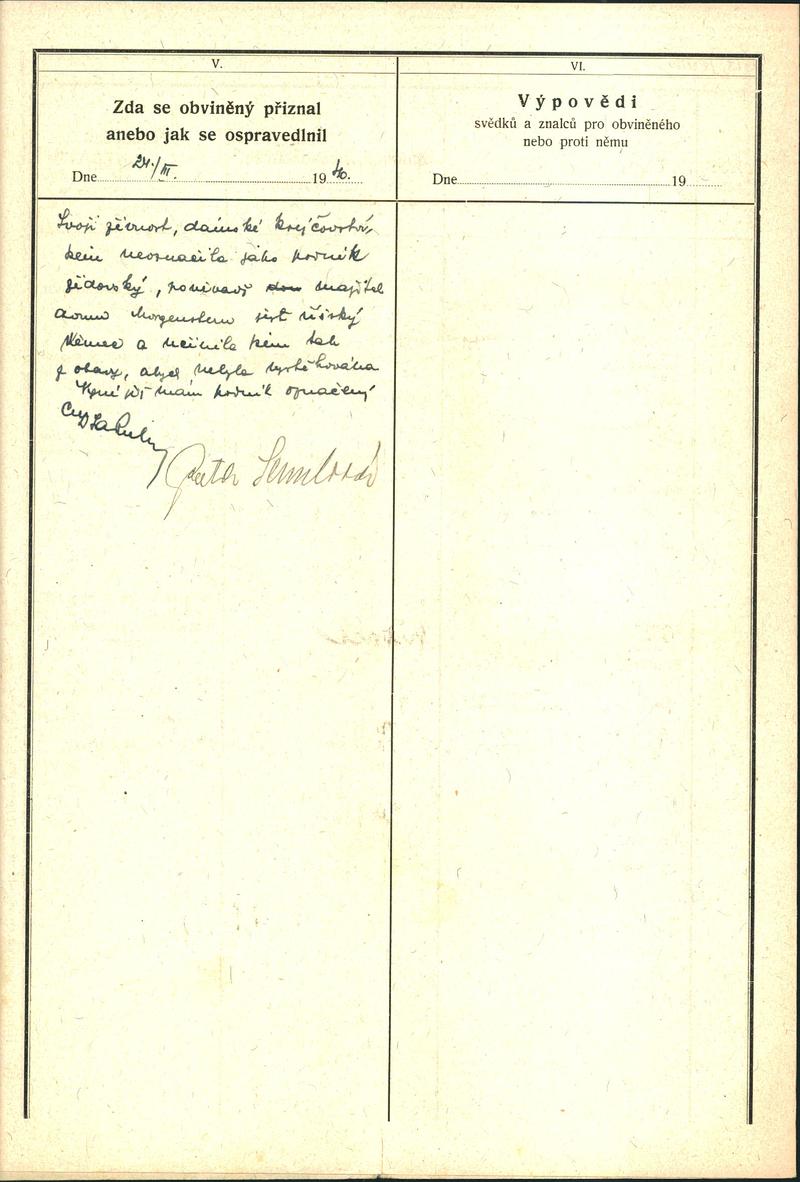 V.
Zda se obviněný přiznal
anebo jak se ospravedlnil
Dne 24./III. 19 40.
Svoji živnost, dámské krejčovství,
jsem neoznačila jako podnik
židovský, poněvadž majitel
domu Morgenstern jest říšský
Němec a učinila jsem tak
z obavy, abych nebyla vystěhována
Nyní již mám podnik označený
VI.
Výpovědi
svědků a znalců pro obviněného
nebo proti němu
Dne 19